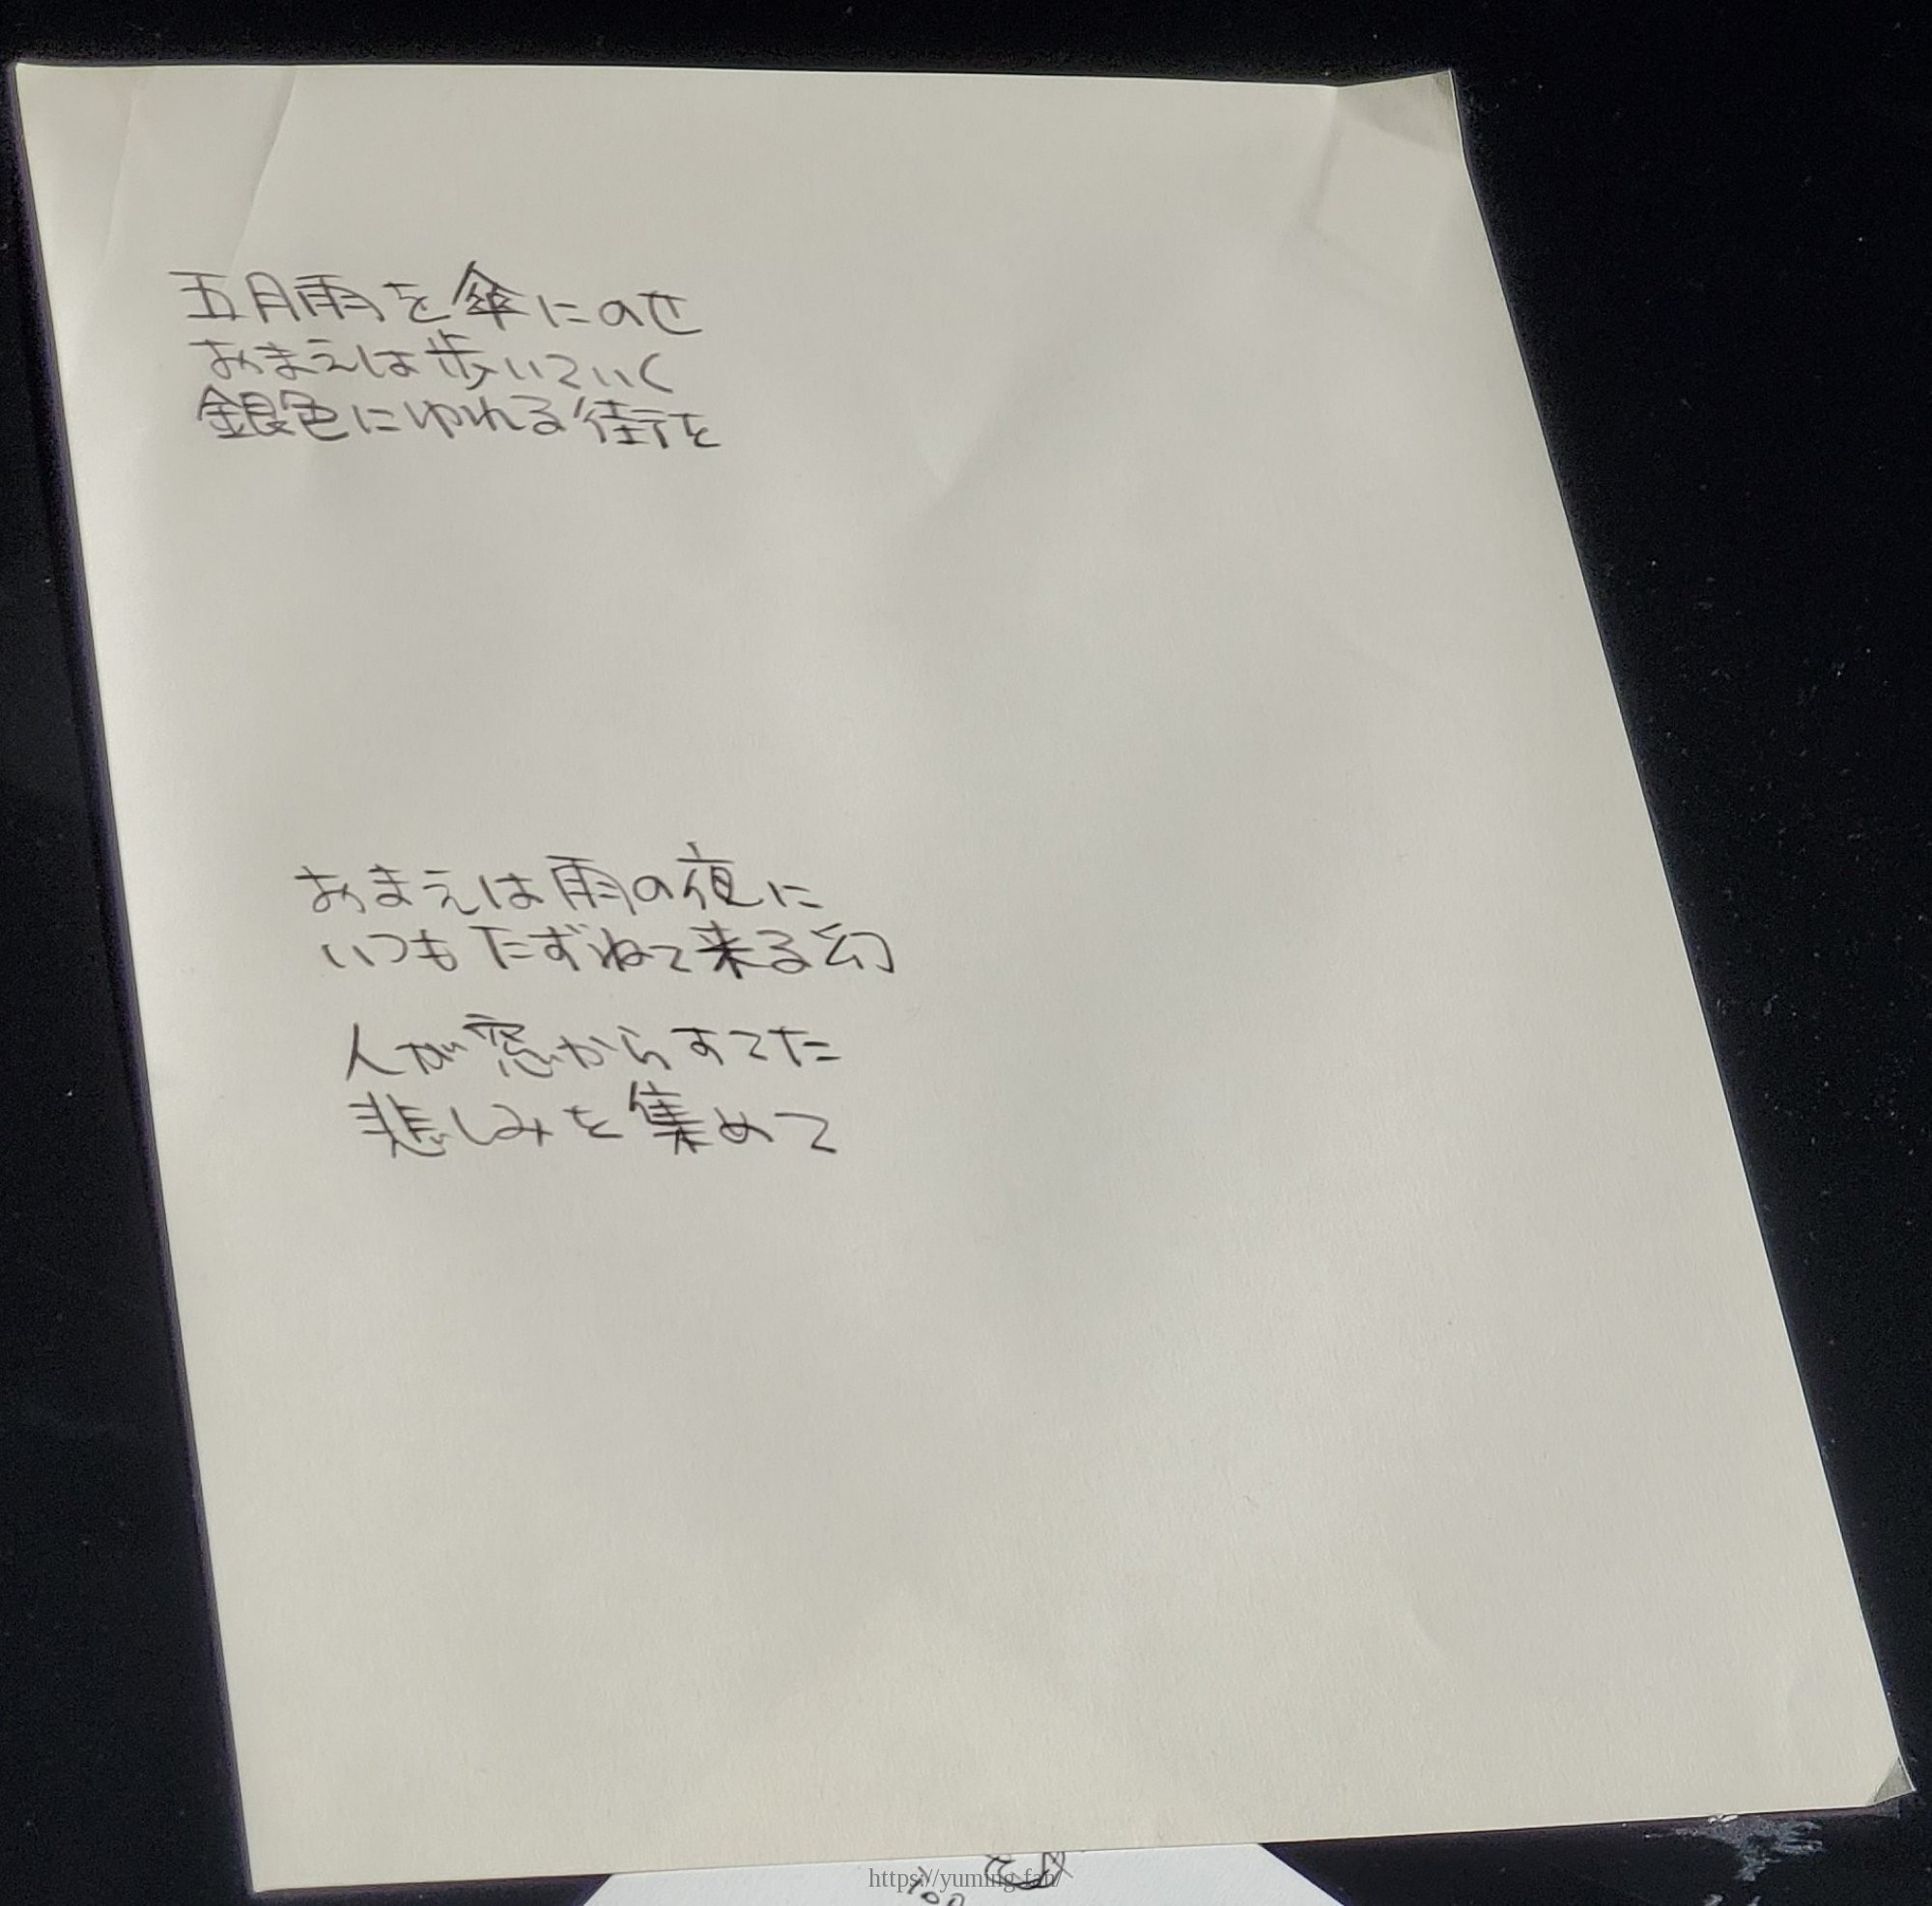 五月雨を傘にのせ
おまえは歩いていく
銀色にゆれる街を
おまえは雨の夜に
いつもたずねて来る幻
人が窓からすてた
悲しみを集めて
https://yuming.fan/